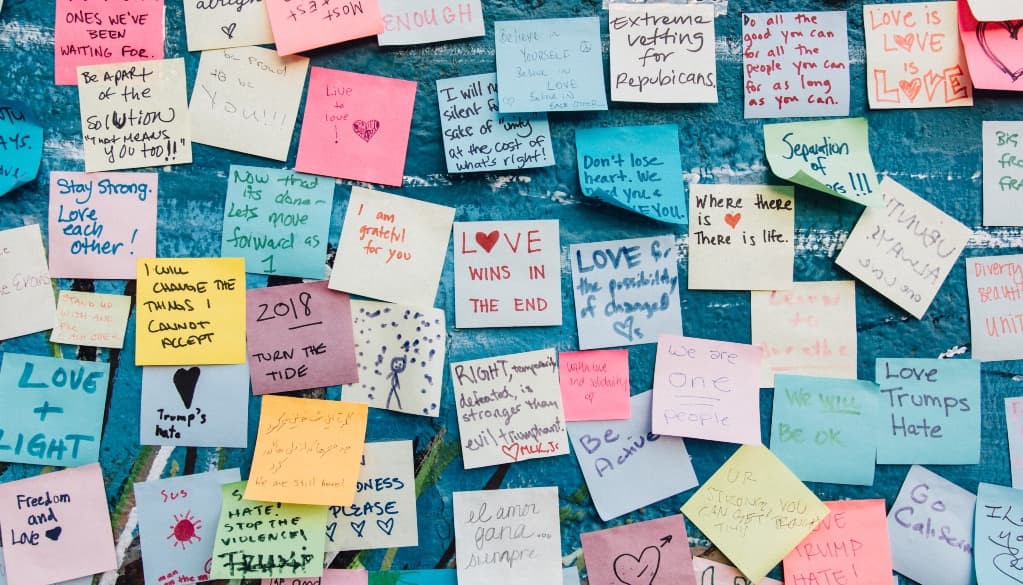 ONES WE'VE
BEEN
WAITING FOR.
alright
MOST
ENOUGH
BELIEVE IN
YOURSELF
BELIEVE IN
LOVE
Extreme
vetting
for
Repubicans.
Do all the
good you can
for all the
people you can
for as long
as you can.
LOVE is
LOVE
is
LOVE
Be APART
of the
SOLUTION
"THAT MEANS
YOU TOO!!"
be proud
to be
YOU!!!
Live
to
love
!
I will n
silent f
sake of "unity"
at the cost of
what's right!
Don't lose
heart. We
need you &
E YOU.
Separation
of
!!!
BIG
Stay Strong.
Love
each
other!
Now that
its done-
Lets move
forward as
1
I am
grateful
for you
LOVE
WINS IN
THE END
LOVE for
the possibility
of changed
s
Where there
is
There is life.
STAND UP
WITH AND
FOR
EACH OTHER
I WILL
CHANGE THE
THINGS I
CANNOT
ACCEPT
2018
TURN THE
TIDE
LOVE
+
LIGHT
Trump's
hate
RIGHT, temporarily
defeated, is
stronger than
evil triumphant.
MLK, Jr
With love
and solidarity
We are
one
people
We will
Be OK
Love
Trumps
Hate
Be
Active
We are still here!
DNESS
PLEASE
UR
STRONG, YOU
CAN GET THROUGH
THIS
Go
Freedom
and
Love
SUS
man on the m
HATE!
STOP THE
VIOLENCE!
el amor
gana...
siempre
VE
TRUMP
HATE!